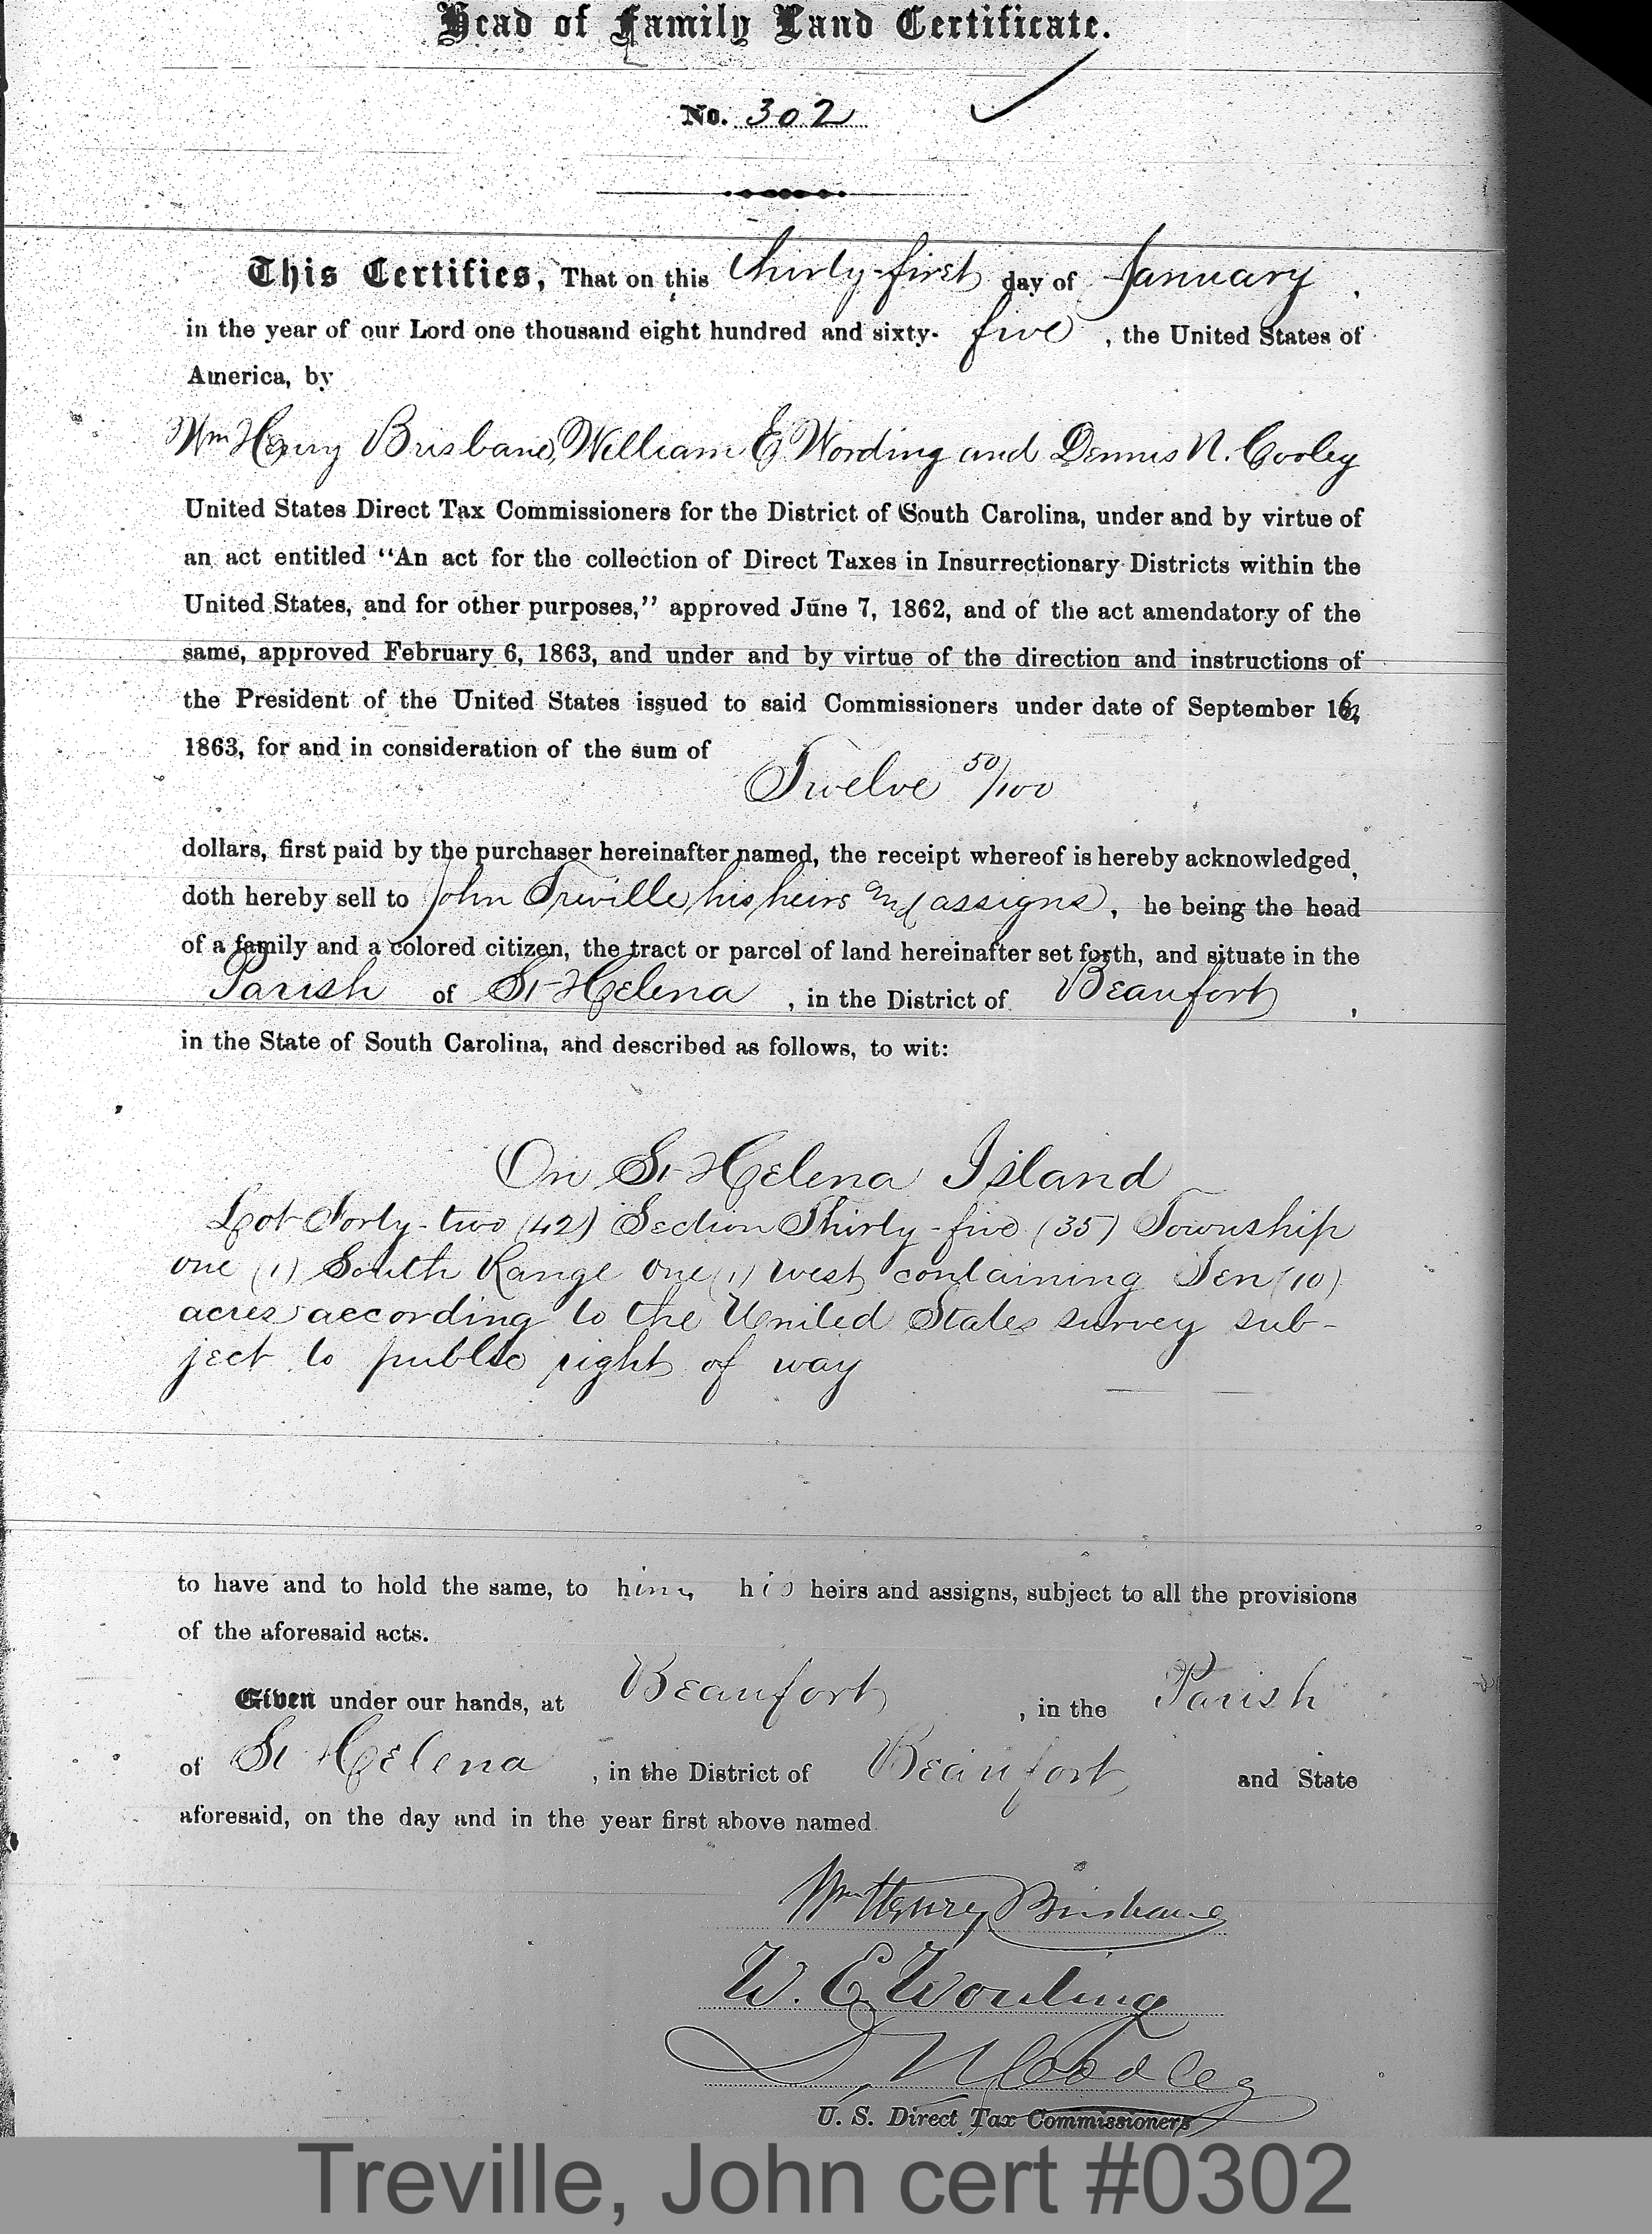 Head of Family Land Certificate.
No. 302
This Certifies, That on this thirty-first day of January,
in the year of our Lord one thousand eight hundred and sixty- five, the United States of
America, by
Wm Henry Brisbane, William E Wording and Dennis N. Cooley
United States Direct Tax Commissioners for the District of South Carolina, under and by virtue of
an act entitled "An act for the collection of Direct Taxes in Insurrectionary Districts within the
United States, and for other purposes," approved June 7, 1862, and of the act amendatory of the
same, approved February 6, 1863, and under and by virtue of the direction and instructions of
the President of the United States issued to said Commissioners under date of September 16,
1863, for and in consideration of the sum of
Twelve 50/100
dollars, first paid by the purchaser hereinafter named, the receipt whereof is hereby acknowledged,
doth hereby sell to John Treville his heirs and assigns, he being the head
of a family and a colored citizen, the tract or parcel of land hereinafter set forth, and situate in the
Parish of St Helena, in the District of Beaufort,
in the State of South Carolina, and described as follows, to wit:
On St Helena Island
Lot Forty-two (42) Section Thirty-five (35) Township
one (1) South Range One (1) West containing Ten (10)
acres according to the United States survey sub-
ject to public right of way
to have and to hold the same, to him, his heirs and assigns, subject to all the provisions
of the aforesaid acts.
Given under our hands, at Beaufort, in the Parish
of St Helena, in the District of Beaufort and State
aforesaid, on the day and in the year first above named.
Wm Henry Brisbane
W. E. Wording
D. N. Cooley
U. S. Direct Tax Commissioners
Treville, John cert #0302